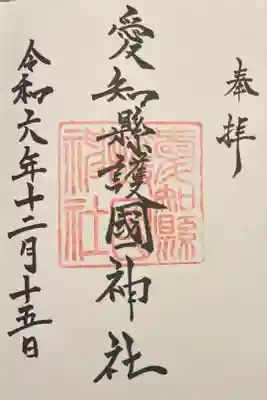 奉拝
愛知縣護國神社
愛知縣
護國神
社
令和六年十二月十五日